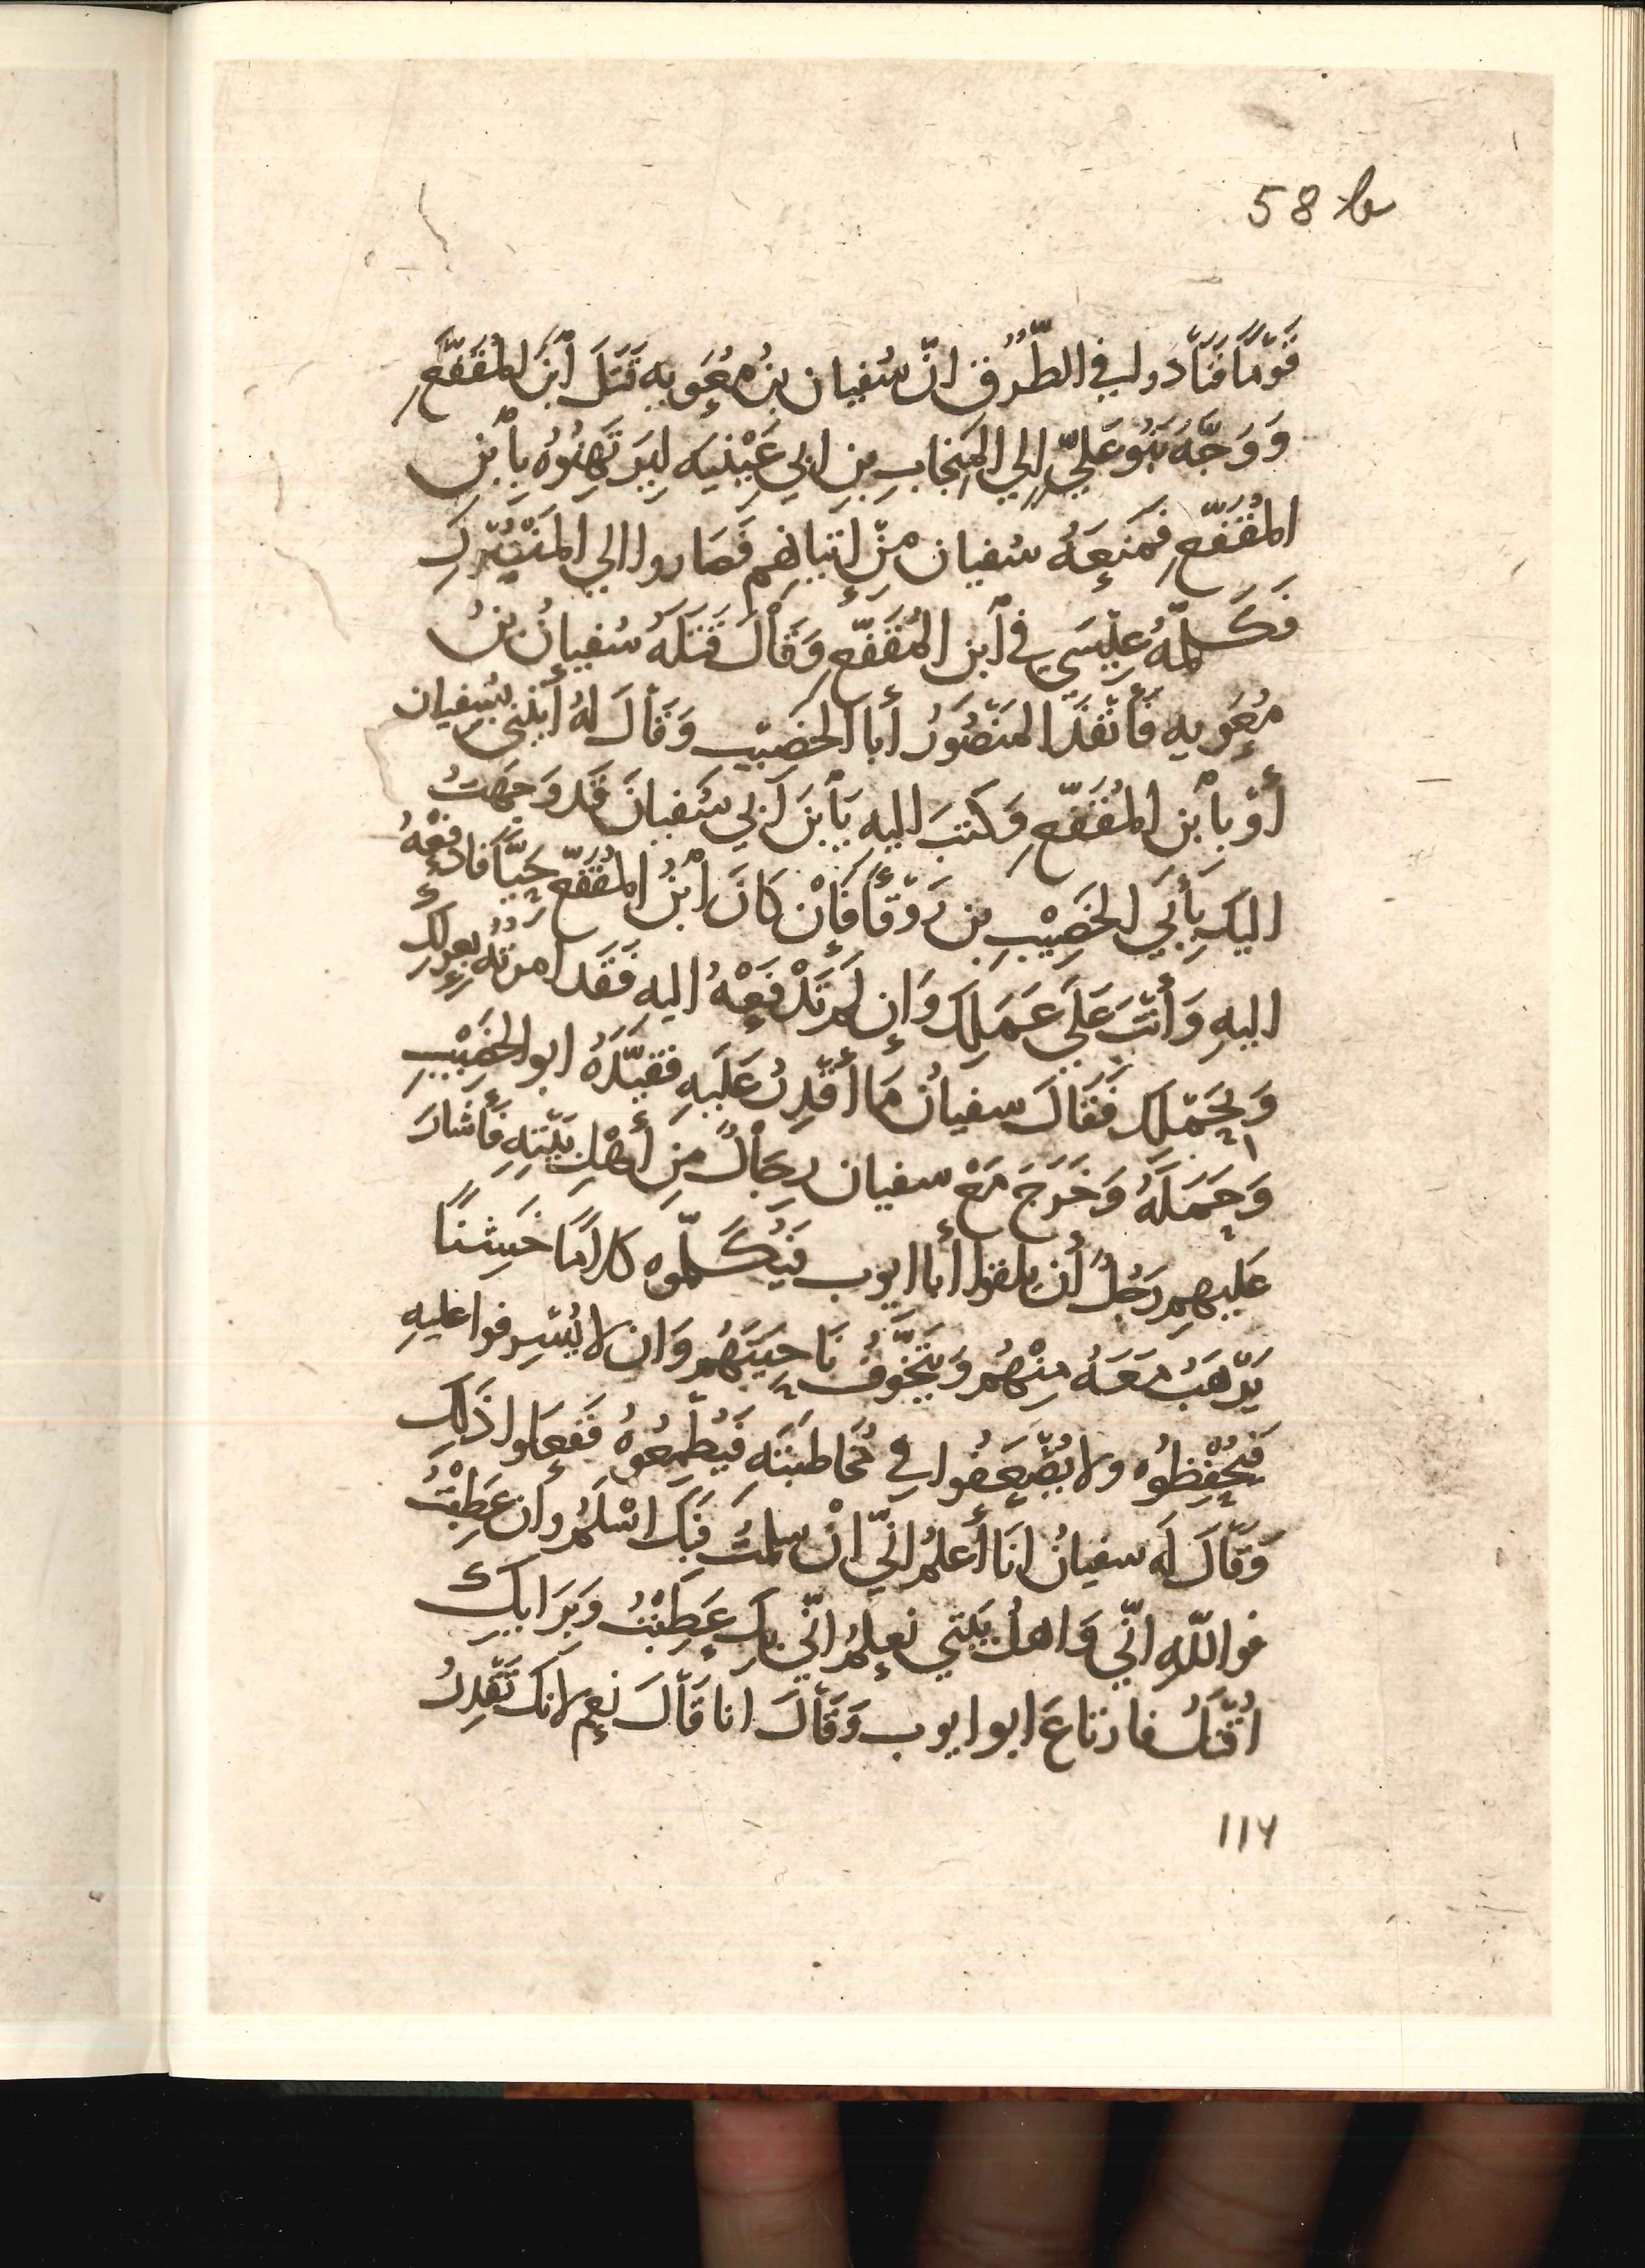 58 b
قَوْمًا فَنَادوا في الطُّرُق انّ سُفيان بنُ مُعَوِيه قَتَلَ ٱبْنَ المُقَفَّعِ
وَوَجَّهَ بَنُو عَلِيٍّ إلى المِنْجَابِ بنِ ابي عُيَيْنِيَه لِيَرتَهِنُوهُ بِٱبْنِ
المُقَفَّعِ فَمَنَعَهُ سُفيان مِنْ إتيانِهِم فَصَاروا الي المَنْصُورِ
فَكَلَّمَهُ عِيْسَي في ٱبن المُقَفَّعِ وَقَالَ قَتَلَهُ سُفيانُ بنُ
مُعَوِيه فَأَنْفَذَ المَنْصُوْرُ أَبا الخَصِيْبِ وَقَالَ لهُ أيتِني بسُفيان
أَوْ بٱبْنِ المُقَفَّعِ وَكَتبَ اليهِ يَٱبْنَ أَبي سُفيانَ قَد وَجَّهتُ
اليكَ بِأَبِي الخَصِيْبِ بن رَوْقَأ فَإِنْ كَانَ ابْنُ المُقَفَّع حَيًّا فَادفَعْهُ
اليهِ وَأَنْتَ عَلَي عَمَلِكَ وَإن لَمْ تَدْفَعْهُ اليهِ فَقَد امرتُهُ بعزلكَ
وَبِحَمْلِكَ فَقَالَ سفيانُ مَا أَقْدِرُ عَلَيهِ فقَيَّدَهُ ابو الخَصِيْبِ
وَحَمَلَهُ وَخَرَجَ مَعَ سفيان رِجَالٌ مِن أَهْلِ بَيْتِهِ فَأَشَارَ
عَليهِم رَجُلٌ أَن يلقوا أبا ايوب فَيُكَلِّموه كلامًا خَشِنًا
يَرْهَبُ مَعَهُ مِنْهُم وَيَتَخَوَّفُ نَاحِيَتَهُم وَان لا يُسْرِفوا عليهِ
فَيُحْفِظُوه ولا يُضْعِفُوا في مُخَاطبَتَه فَيُطْمِعُوهُ فَفَعلوا ذَلِكَ
وَقَالَ لَه سفيانُ انَا أَعلمُ انّي انْ سلمتُ فَبِكَ اسْلَمُ وان عَطِبْتُ
فواللّهِ انّي وَاهلُ بَيْتي نعلمُ انّي بكَ عَطِبْتُ وَبِرَايكَ
اُقْتَلُ فارتاعَ ابو ايوب وَقَالَ انا قَالَ نعم لانكَ تَقْدِرُ
117